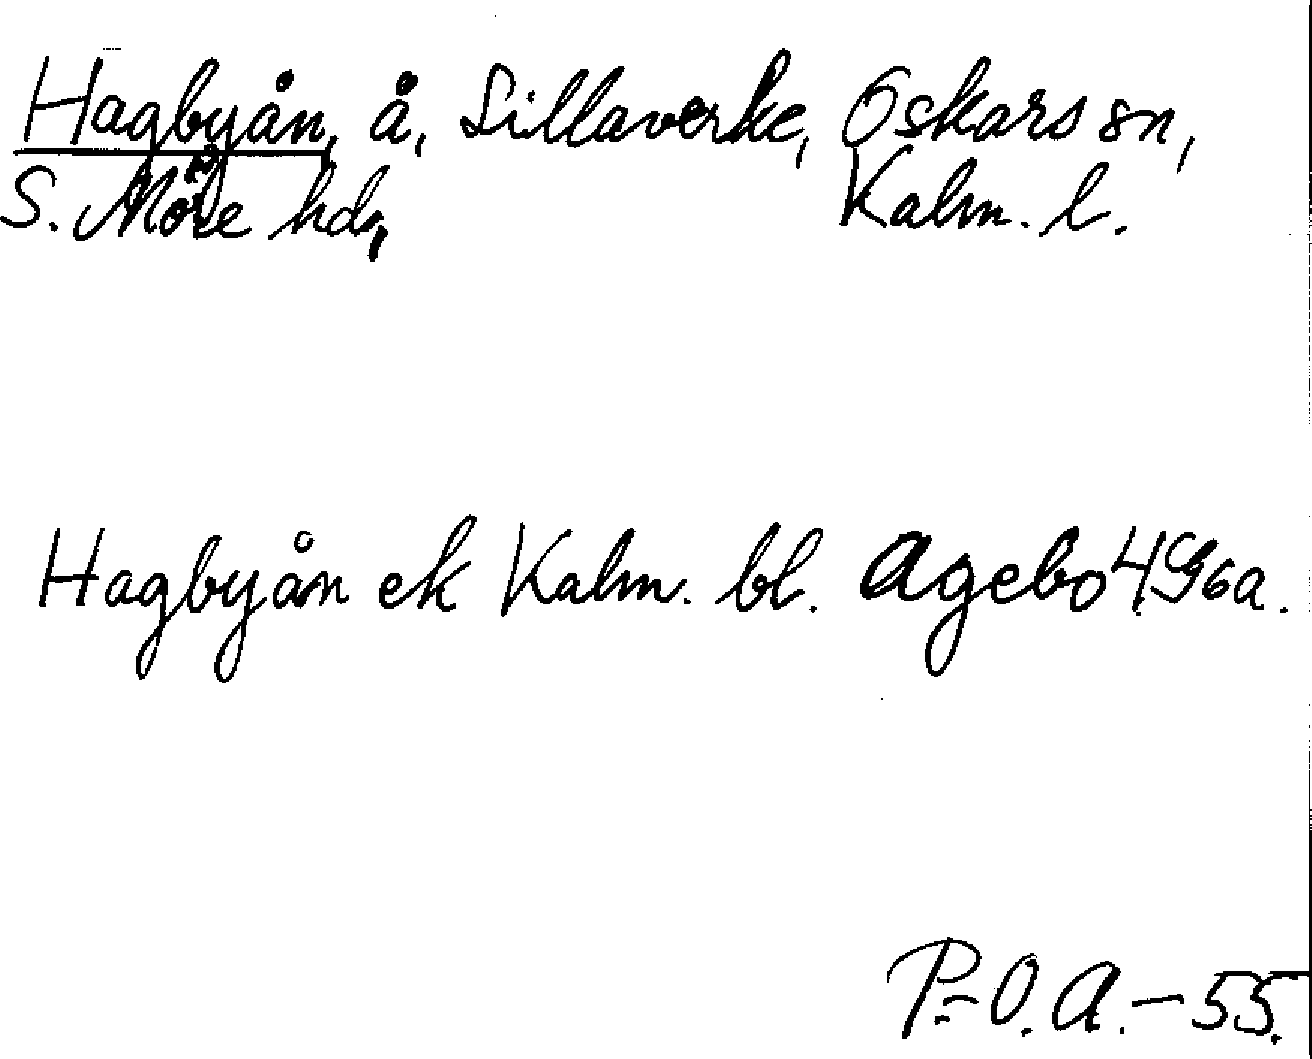 Hagbyån, å, Sillaverke, Oskars sn,
S. Möre hd, Kalm. l.
Hagbyån ek Kalm. bl. Agebo 4 G6a.
P.-O. A. – 55.